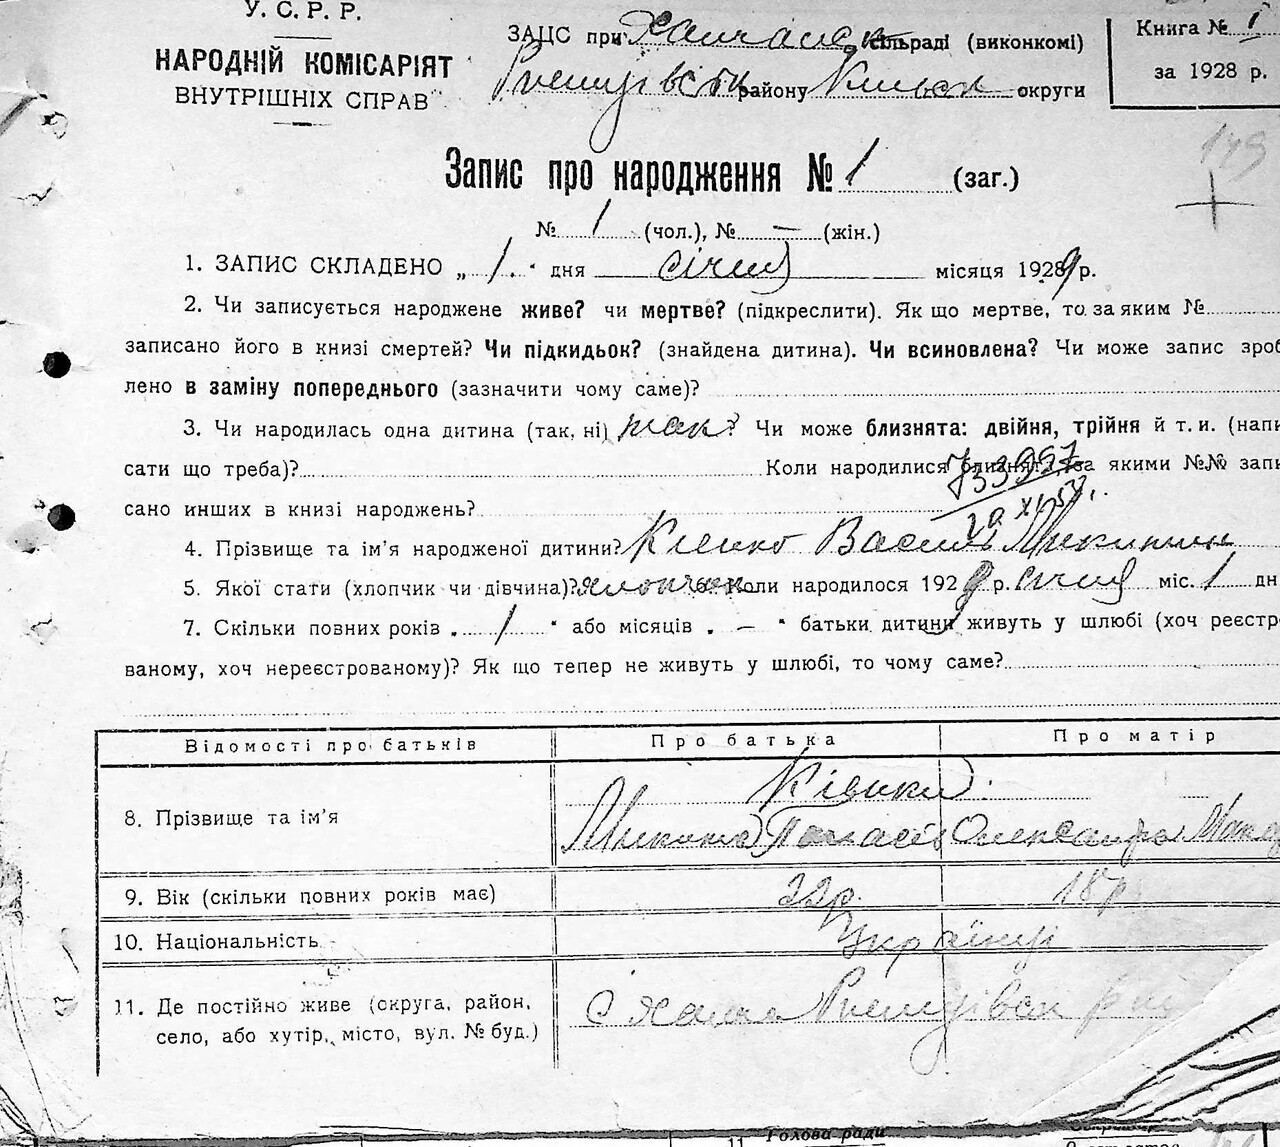 У. С. Р. Р.
НАРОДНІЙ КОМІСАРІЯТ
ВНУТРІШНІХ СПРАВ
ЗАЦС при сільраді (виконкомі)
району округи
Книга № 1
за 1928 р.
149
Запис про народження № 1 (заг.)
№ 1 (чол.), № — (жін.)
1. ЗАПИС СКЛАДЕНО „ 1. " дня січня місяця 1929 р.
2. Чи записується народжене живе? чи мертве? (підкреслити). Як що мертве, то за яким №
записано його в книзі смертей? Чи підкидьок? (знайдена дитина). Чи всиновлена? Чи може запис зроб
лено в заміну попереднього (зазначити чому саме)?
3. Чи народилась одна дитина (так, ні) так? Чи може близнята: двійня, трійня й т. и. (напи
сати що треба)? Коли народилися близнята, за якими №№ запи
сано инших в книзі народжень?
4. Прізвище та ім'я народженої дитини? Василь
5. Якої стати (хлопчик чи дівчина)? хлопчик 6. Коли народилося 1929 р. січня міс. 1 дн
7. Скільки повних років „ 1 " або місяців „ — " батьки дитини живуть у шлюбі (хоч реєстро
ваному, хоч нереєстрованому)? Як що тепер не живуть у шлюбі, то чому саме?
Відомості про батьків Про батька Про матір
8. Прізвище та ім'я Микита Олександра
9. Вік (скільки повних років має) 22р. 18р
10. Національність Українці
11. Де постійно живе (округа, район,
село, або хутір, місто, вул. № буд.)
11 Голова ради